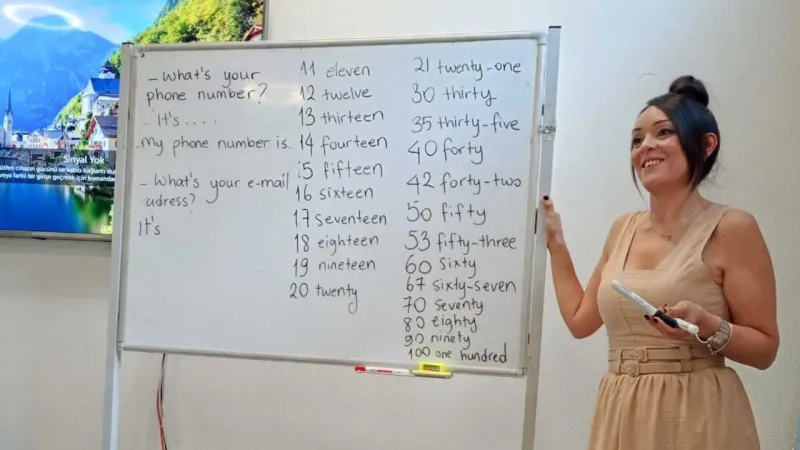 - What's your
phone number?
- It's ....
My phone number is..
- What's your e-mail
adress?
It's
11 eleven
12 twelve
13 thirteen
14 fourteen
15 fifteen
16 sixteen
17 seventeen
18 eighteen
19 nineteen
20 twenty
21 twenty-one
30 thirty
35 thirty-five
40 forty
42 forty-two
50 fifty
53 fifty-three
60 sixty
67 sixty-seven
70 seventy
80 eighty
90 ninety
100 one hundred
Sinyal Yok
lütfen cihazın gücünü ve kablo bağlantı
veya farklı bir girişe geçmek için